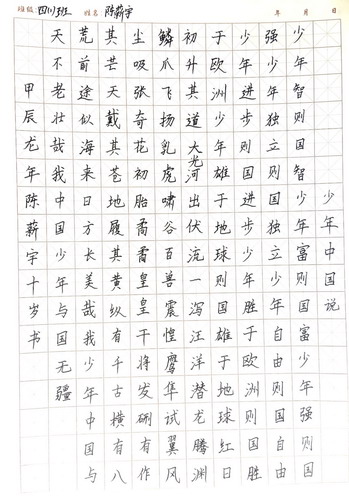 班级 四(1)班 姓名 陈薪宇 年 月 日
少年中国说
少年智则国智少年富则国富少年强则国
强少年独立则国独立少年自由则国自由
少年进步则国进步少年胜于欧洲则国胜
于欧洲少年雄于地球则国雄于地球红日
初升其道大光河出伏流一泻汪洋潜龙腾渊
鳞爪飞扬乳虎啸谷百兽震惶鹰隼试翼风
尘吸张奇花初胎矞矞皇皇干将发硎有作
其芒天戴其苍地履其黄纵有千古横有八
荒前途似海来日方长美哉我少年中国与
天不老壮哉我中国少年与国无疆
甲辰龙年陈薪宇十岁书